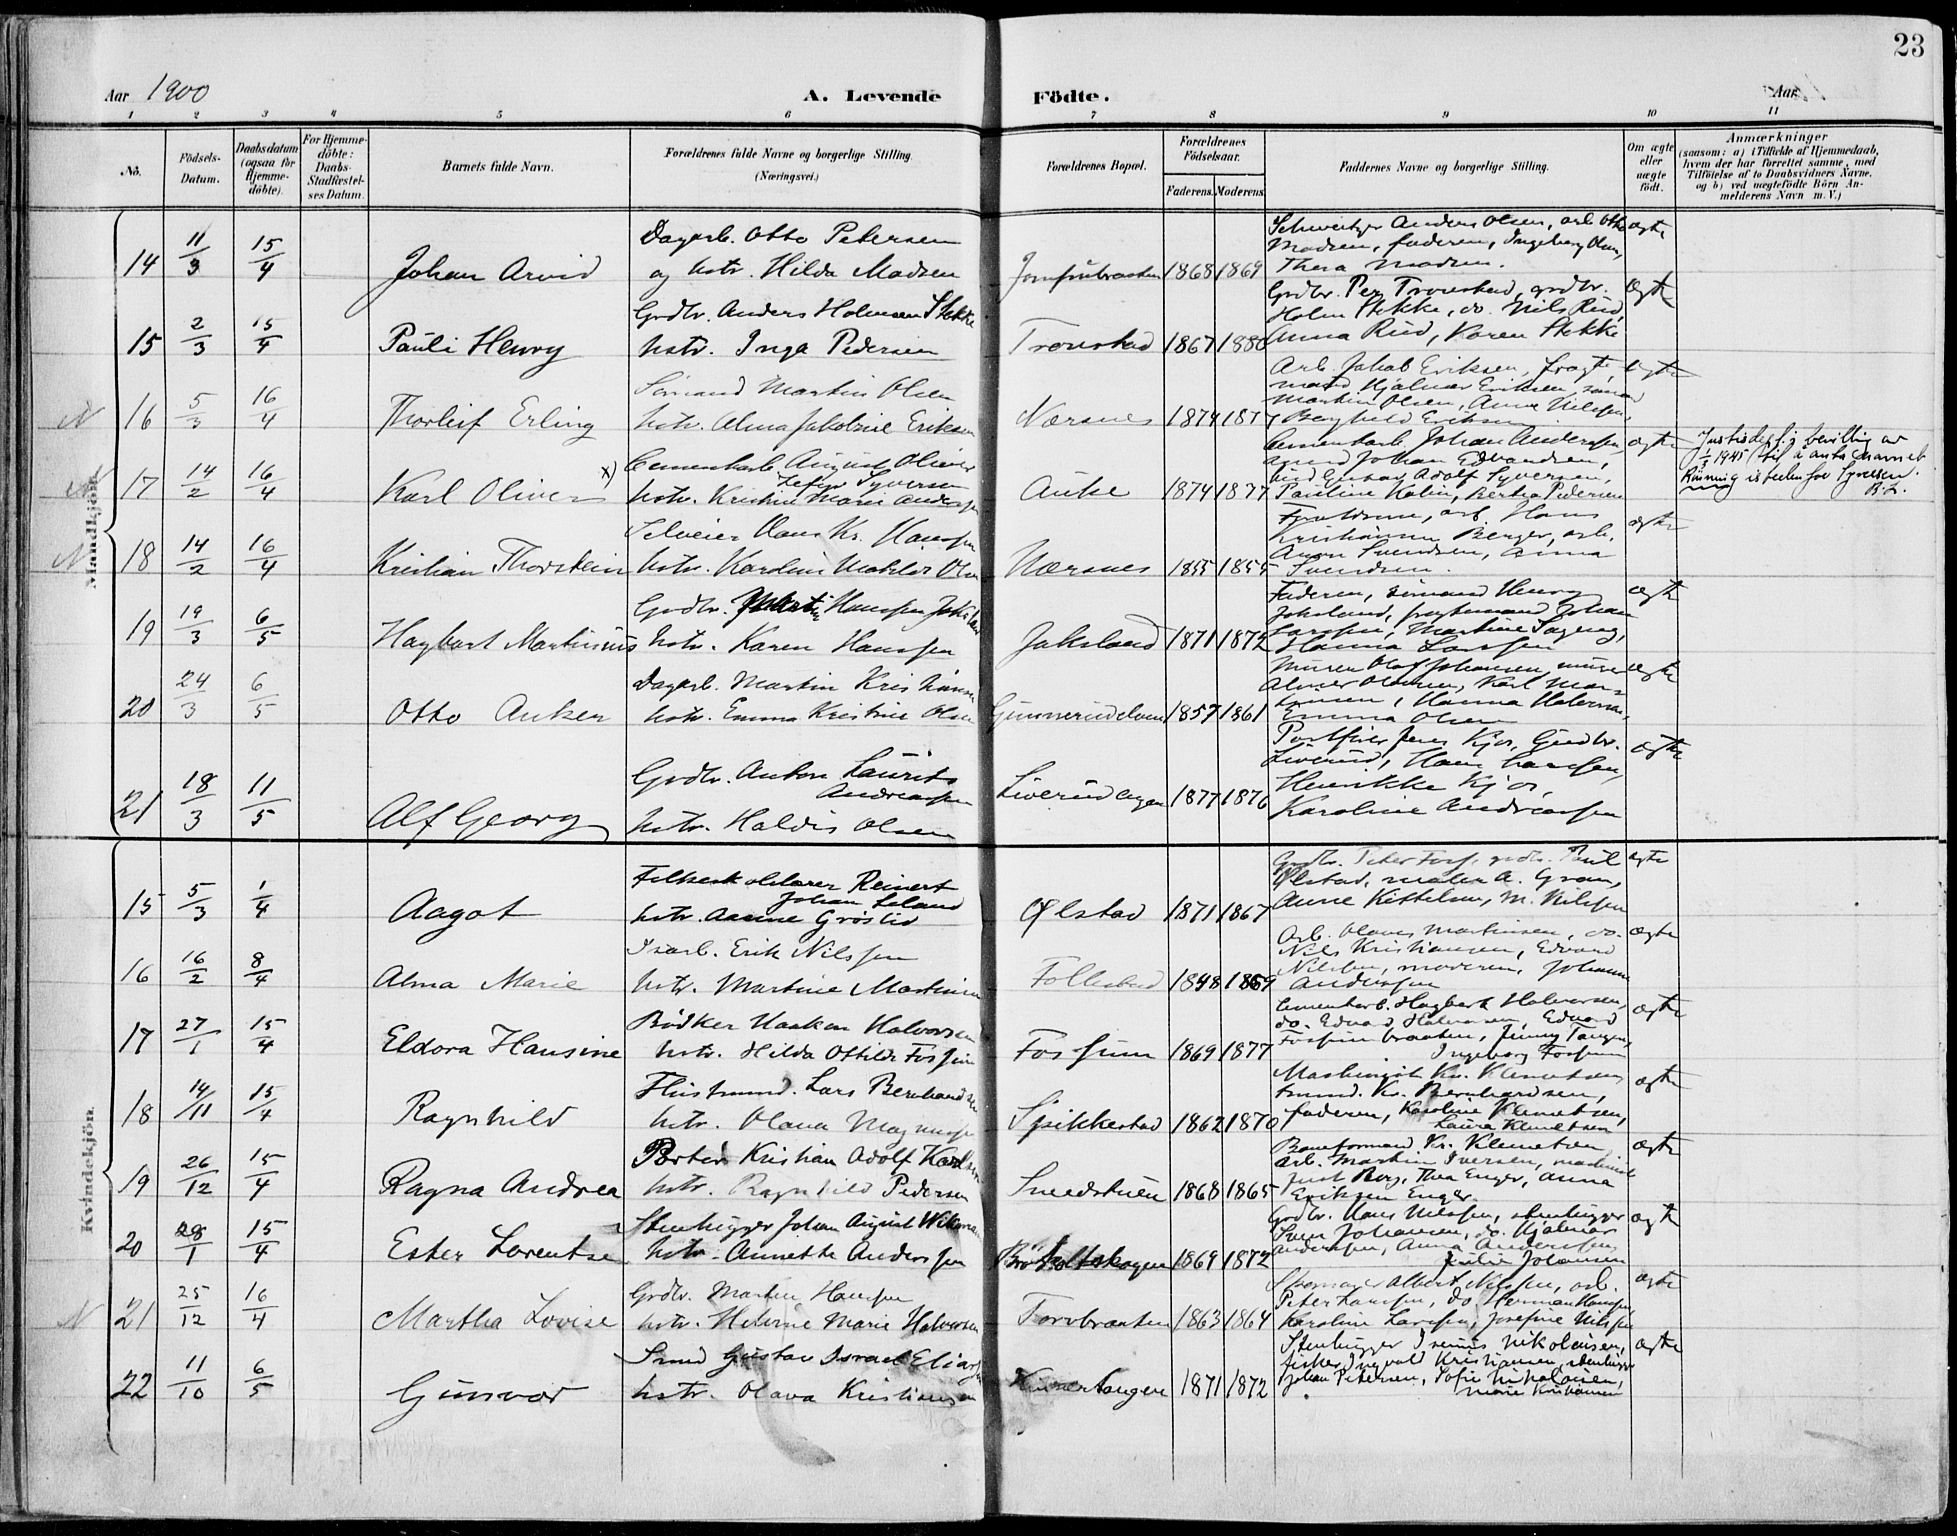 23
Aar 1900
A. Levende Födte.
Aar
1 2 3 4 5 6 7 8 9 10 11
No.
Födsels-Datum.
Daabsdatum (ogsaa for Hjemme-döbte).
For Hjemme-döbte: Daabs-Stadfæstel-ses Datum.
Barnets fulde Navn.
Forældrenes fulde Navne og borgerlige Stilling.
(Næringsvei.)
Forældrenes Bopæl.
Forældrenes Födselsaar.
Faderens. Moderens.
Faddernes Navne og borgerlige Stilling.
Om ægte eller uægte födt.
Anmærkninger
(saasom: a) i Tilfælde af Hjemmedaab,
hvem der har forrettet samme, med
Tilföielse af to Daabsvidners Navne.
og b) ved uægtefödte Börn An-
melderens Navn m. V.)
Mandkjön.
14 11/3 15/4 Johan Arvid
Dagarb. Otto Petersen
og hstr. Hilda Madsen
1868 1869
Schweitzer Anders Olsen, arb. Otto
Madsen, faderen, Ingeborg Olsen,
Thora Madsen.
ægte
15 2/3 15/4 Pauli Henry
Grdbr. Anders Holmsen Stokke
hstr. Inga Pedersen
Tronstad 1867 1880
Grdbr. Per Tronstad, grdbr.
Holm Stokke, do. Nils Rud,
Anna Rud, Karen Stokke
ægte
N 16 5/3 16/4 Thorleif Erling
Sömand Martin Olsen
hstr. Alma Jakobine Eriksen
Nærsnes 1874 1877
Arb. Jakob Eriksen, fragte-
mand Hjalmar Eriksen, sömand
Martin Olsen, Anna Nilssen,
Borghild Eriksen
ægte
N 17 14/2 16/4 Karl Oliver x)
Cementarb. August Oliver
Syversen
hstr. Kristine Marie Anderssen
1874 1877
Cementarb. Johan Anderssen,
Johan Edvardsen,
Gustav Adolf Syversen,
Pauline Holm, Bertha Pedersen
ægte
Justisdep.s bevilling av
1/3 1945 til å anta navnet
Rönning isteden for Syversen.
N 18 14/2 16/4 Kristian Thorstein
Selveier Hans Kr. Hanssen
hstr. Karoline Mathilde Olsen
Nærsnes 1855 1855
Forældrene, arb. Hans
Kristiansen Berger, arb.
Svendsen, Anna
Svendsen.
ægte
19 19/3 6/5 Hagbart Martinius
Grdbr. Hanssen Jaksland
hstr. Karen Hanssen
Jaksland 1871 1872
Faderen, sömand Henry
Jaksland, fragtemand Johan
Larssen, Martine Sageng,
Hanna Larssen
ægte
20 24/3 6/5 Otto Anker
Dagarb. Martin Kristiansen
hstr. Emma Kristine Olsen
1857 1861
Murer Olaf Johansen, murer
Karl Mar-
tinsen, Hanna Halvorsen,
Emma Olsen
ægte
21 18/3 11/5 Alf Georg
Grdbr. Anton Laurits
Andreassen
hstr. Haldis Olsen
Liverudhagen 1877 1876
Jens Kjos, Grdbr.
Liverud, Hans Larssen,
Henrikke Kjos,
Karoline Andreassen
ægte
Kvindekjön.
15 5/3 1/4 Aagot
Folkeskolelærer Reinert
Johan Leland
hstr. Aanne Gröslid
Ölstad 1871 1867
Grdbr. Peter Foss, grdbr. Paul
Ölstad, maler A. Gram,
Anne Kittelsen, M. Nilssen
ægte
16 16/2 8/4 Alma Marie
Isarb. Erik Nilssen
hstr. Martine Martinsen
Follestad 1848 1859
Arb. Olaves Martinsen, do.
Nils Kristiansen, Edvard
Nilssen, moderen, Johanne
Anderssen
ægte
17 27/1 15/4 Eldora Hansine
Bödker Haakon Halvorsen
hstr. Hilda Otilde Fossum
Fossum 1869 1877
Cementarb. Hagbart Halvorsen,
do. Edvard Halvorsen, Edvard
Fossumbraaten, Jenny Tangen,
Ingeborg Fossum
ægte
18 14/11 15/4 Ragnhild
Lars Bernhardsen
hstr. Olava Magnussen
Spikkestad 1862 1870
Maskinist Kr. Klemetsen,
Kr. Bernhardsen,
faderen, Karoline Klemetsen,
Laura Klemetsen
ægte
19 26/12 15/4 Ragna Andrea
Portör Kristian Adolf Karlsen
hstr. Ragnhild Pedersen
Smedstuen 1868 1865
Baneformand Kr. Klemetsen,
arb. Martin Iversen, maskinist
Just Borg, Thea Enger, Anna
Eriksen Enger.
ægte
20 28/1 15/4 Ester Lorentse
Stenhugger Johan August
hstr. Annette Anderssen
1869 1872
Grdbr. Hans Nilssen, stenhugger
Sven Johansen, do. Hjalmar
Anderssen, Anna Anderssen,
Julie Johansen
ægte
N 21 25/12 16/4 Martha Lovise
Grdbr. Morten Hanssen
hstr. Helene Marie Halvorsen
Torvbraaten 1863 1864
Skomager Albert Nilssen, arb.
Peter Larssen, do. Herman Hanssen,
Karoline Larssen, Josefine Nilssen
ægte
22 11/10 6/5 Gunvor
Smed Gustav Israel Eliassen
hstr. Olava Kristiansen
1871 1872
Stenhugger Nikolaisen,
fisker Ingvald Kristiansen, stenhugger
Johan Petersen, Sofie Nikolaisen,
Marie Kristiansen
ægte